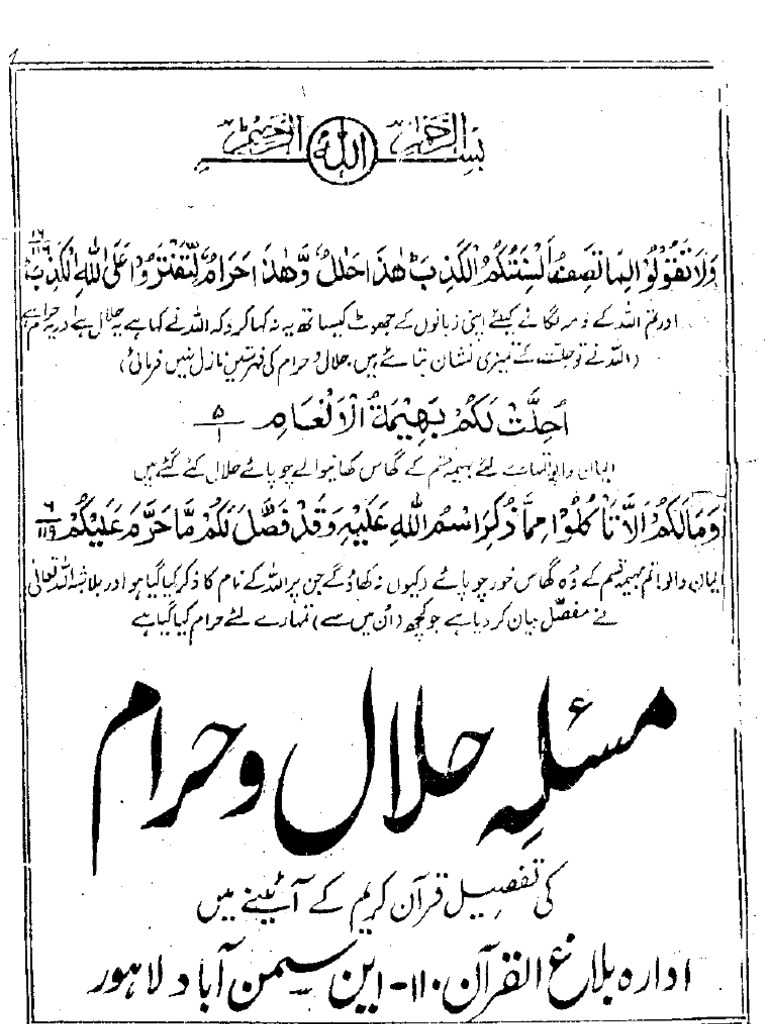 بسم الله الرحمن الرحيم
وَلَا تَقُوْلُوْا لِمَا تَصِفُ اَلْسِنَتُكُمُ الْكَذِبَ هٰذَا حَلٰلٌ وَّهٰذَا حَرَامٌ لِّتَفْتَرُوْا عَلَى اللهِ الْكَذِبَ ۱۶/۱۱۶
اور تم اللہ کے ذمہ لگانے کیلئے اپنی زبانوں کے جھوٹ کیساتھ یہ نہ کہا کرو کہ اللہ نے کہا ہے یہ حلال ہے اور یہ حرام ہے
(اللہ نے تو حلت کے تمیزی نشان بتائے ہیں، حلال و حرام کی فہرستیں نازل نہیں فرمائی)
اُحِلَّتْ لَكُمْ بَهِيْمَةُ الْاَنْعَامِ ۵/۱
ایمان والو تمہارے لئے بہیمہ قسم کے گھاس کھانیوالے چوپائے حلال کئے گئے ہیں
وَمَا لَكُمْ اَلَّا تَاْكُلُوْا مِمَّا ذُكِرَ اسْمُ اللهِ عَلَيْهِ وَقَدْ فَصَّلَ لَكُمْ مَّا حَرَّمَ عَلَيْكُمْ ۶/۱۱۹
ایمان والو! تم بہیمہ قسم کے وہ گھاس خور چوپائے کیوں نہ کھاؤ گے جن پر اللہ کے نام کا ذکر کیا گیا ہو اور بلاشبہ اللہ تعالیٰ
نے مفصل بیان کر دیا ہے جو کچھ (اُن میں سے) تمہارے لئے حرام کیا گیا ہے
مسئلہ حلال و حرام
کی تفصیل قرآن کریم کے آئینے میں
ادارہ بلاغ القرآن ۱۱۰- این سمن آباد لاہور